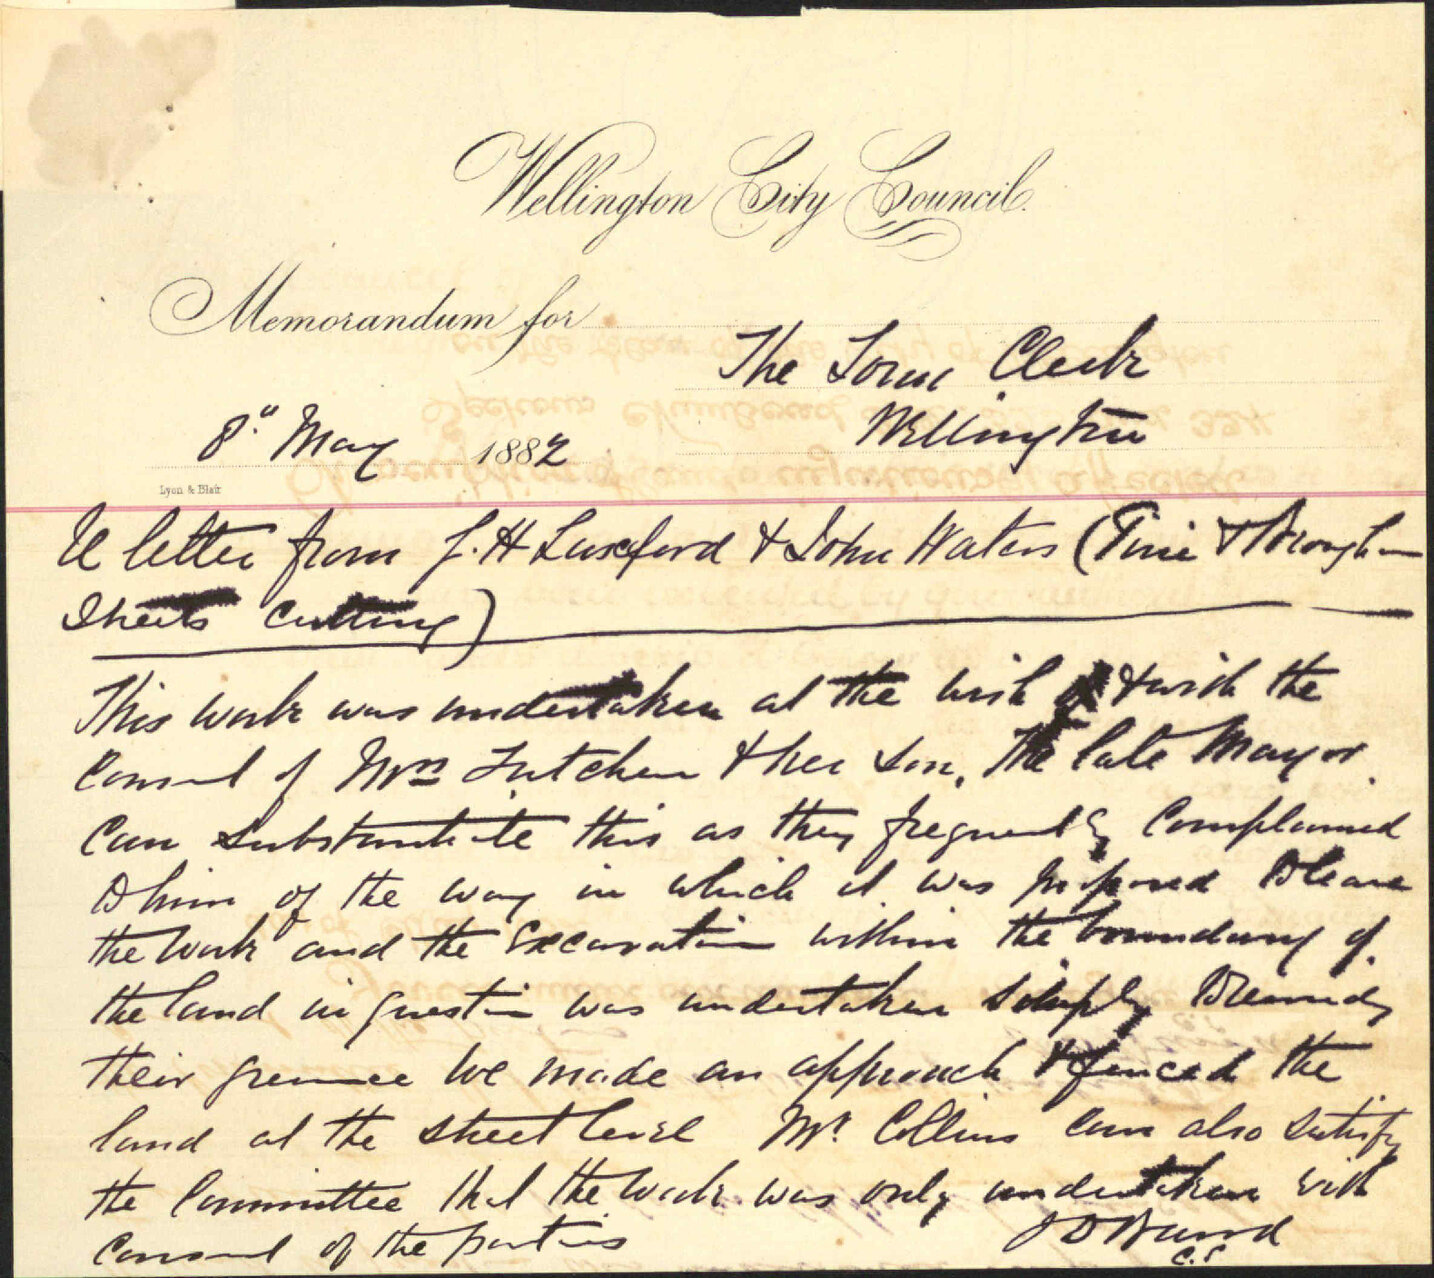 Wellington City Council.
Memorandum for
The Town Clerk
Wellington
8" May 1882
Lyon & Blair
Re letter from J. H Luxford & John Waters (Pirie & Brougham
Streets Cutting)
This work was undertaken at the wish & with the
consent of Mrs Futcher & her son. The late Mayor
can substantiate this as they frequently complained
to him of the way in which it was proposed to leave
the work and the excavation within the boundary of
the land in question was undertaken simply to remedy
their grievance We made an approach & fenced the
land at the street level Mr. Collins can also satisfy
the Committee that the work was only undertaken with
consent of the parties
J D Baird
C.S